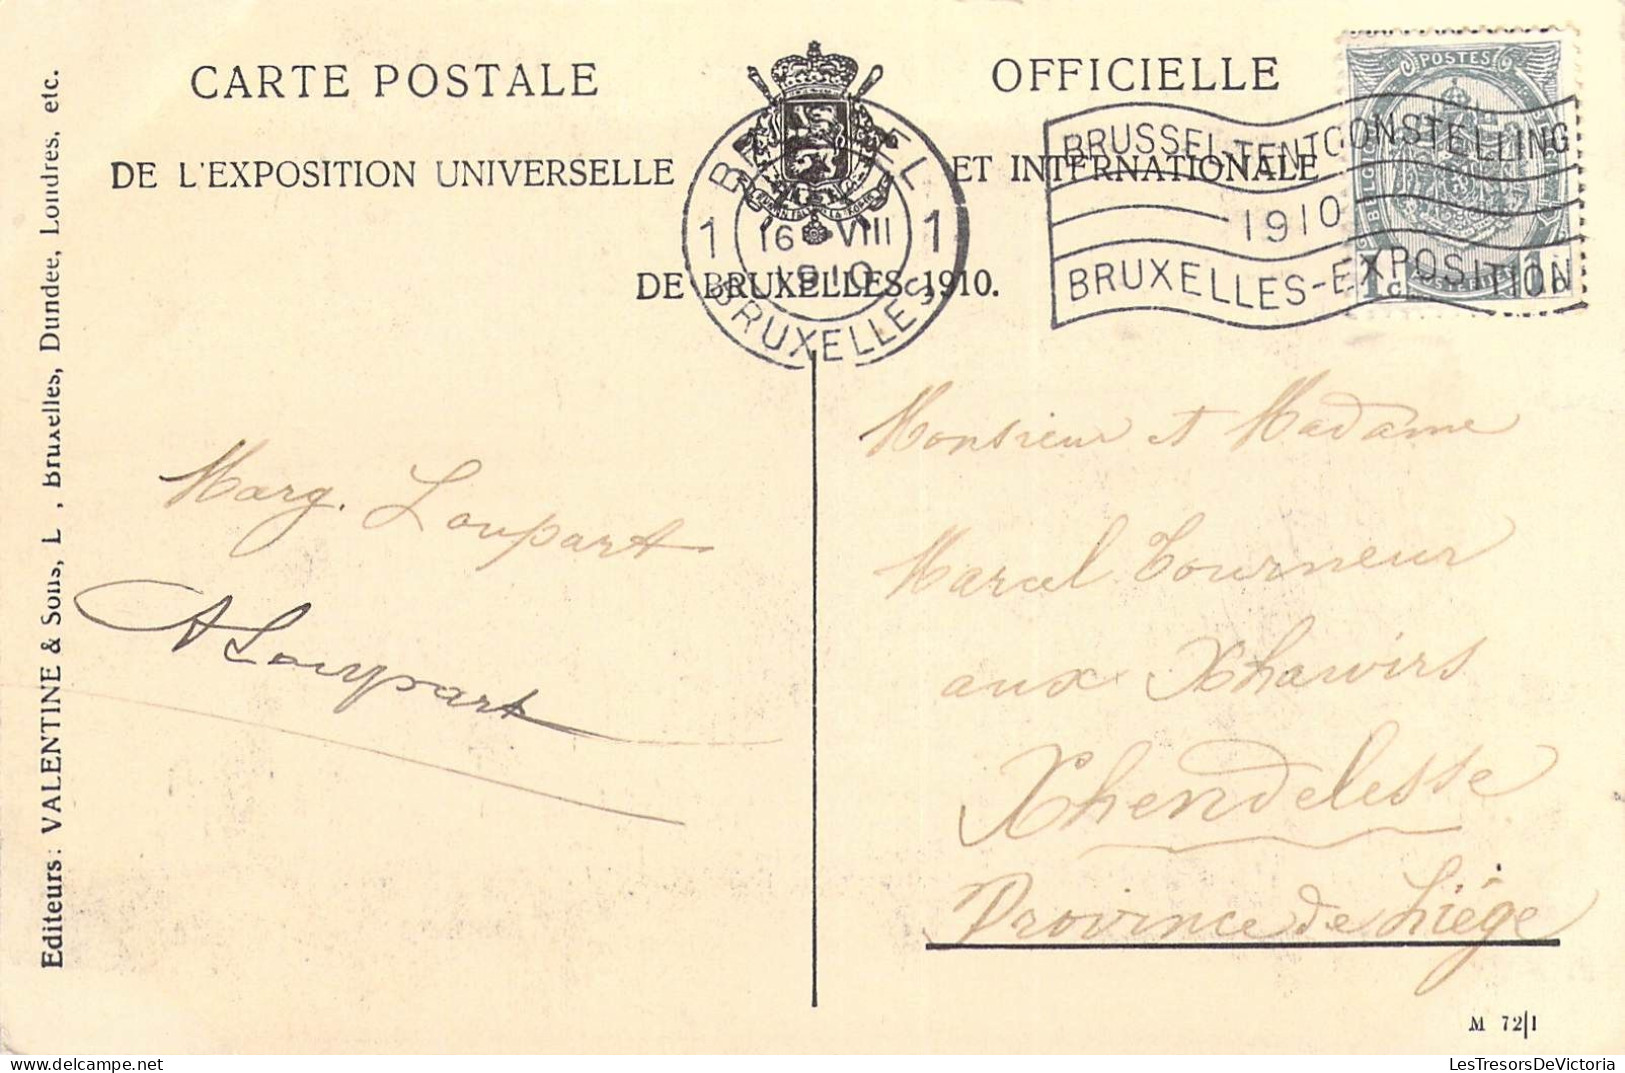 CARTE POSTALE OFFICIELLE
DE L'EXPOSITION UNIVERSELLE ET INTERNATIONALE
DE BRUXELLES 1910.
BRUSSEL
1 16 VIII 1
1910
BRUXELLES
BRUSSEL-TENTOONSTELLING
1910
BRUXELLES-EXPOSITION
POSTES
1c 1c
Editeurs: VALENTINE & Sons, L , Bruxelles, Dundee, Londres, etc.
Marg. Loupart
A Loupart
Monsieur et Madame
Marcel Tourneur
aux Xhawirs
Xhendelesse
Province de Liége
M 72|1
LesTresorsDeVictoria